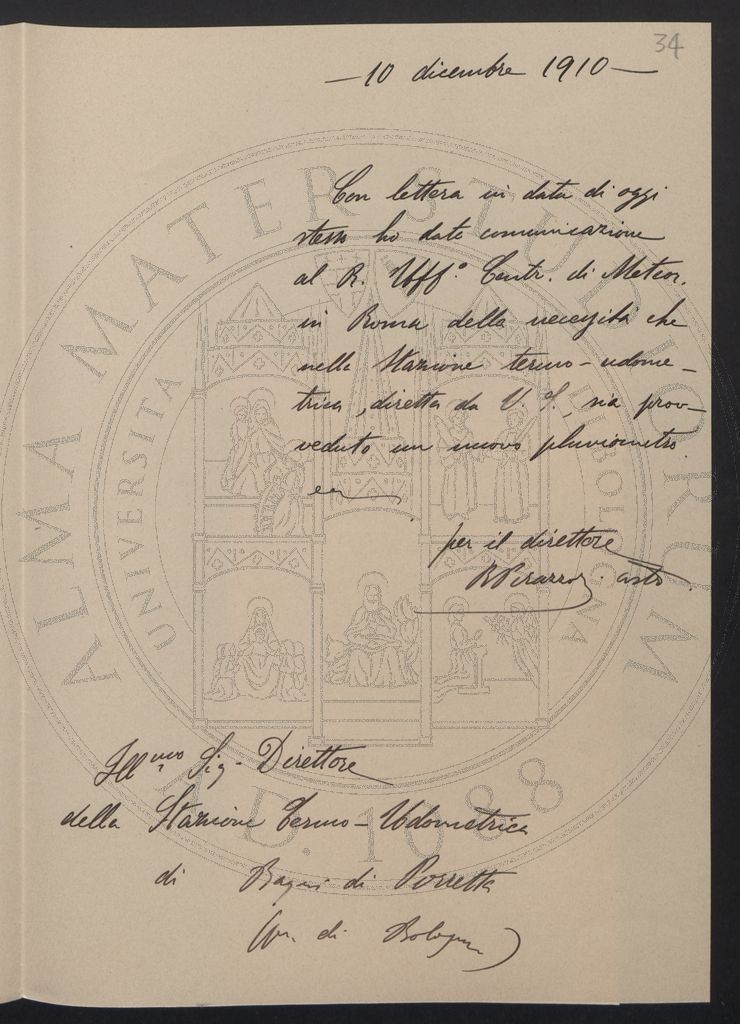 34
— 10 dicembre 1910 —
Con lettera in data di oggi
stesso ho dato comunicazione
al R. Uff.° Centr. di Meteor.
in Roma della necessità che
nella Stazione termo-udome-
trica, diretta da V. S., sia prov-
veduto un nuovo pluviometro.
per il direttore
Ill.mo Sig. Direttore
della Stazione Termo-Udometrica
di Bagni di Porretta
di Bologna)
ALMA MATER STUDIORUM
UNIVERSITÀ DI BOLOGNA
A.D. 1088